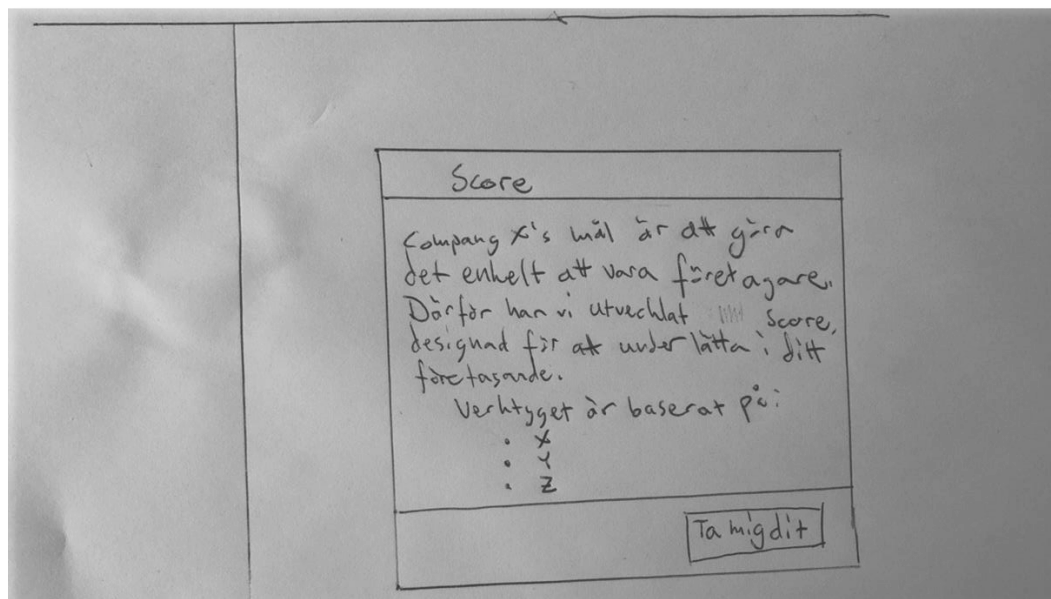 Score
Company X's mål är att göra
det enkelt att vara företagare.
Därför har vi utvecklat Score,
designad för att underlätta i ditt
företagande.
Verktyget är baserat på:
• X
• Y
• Z
Ta mig dit